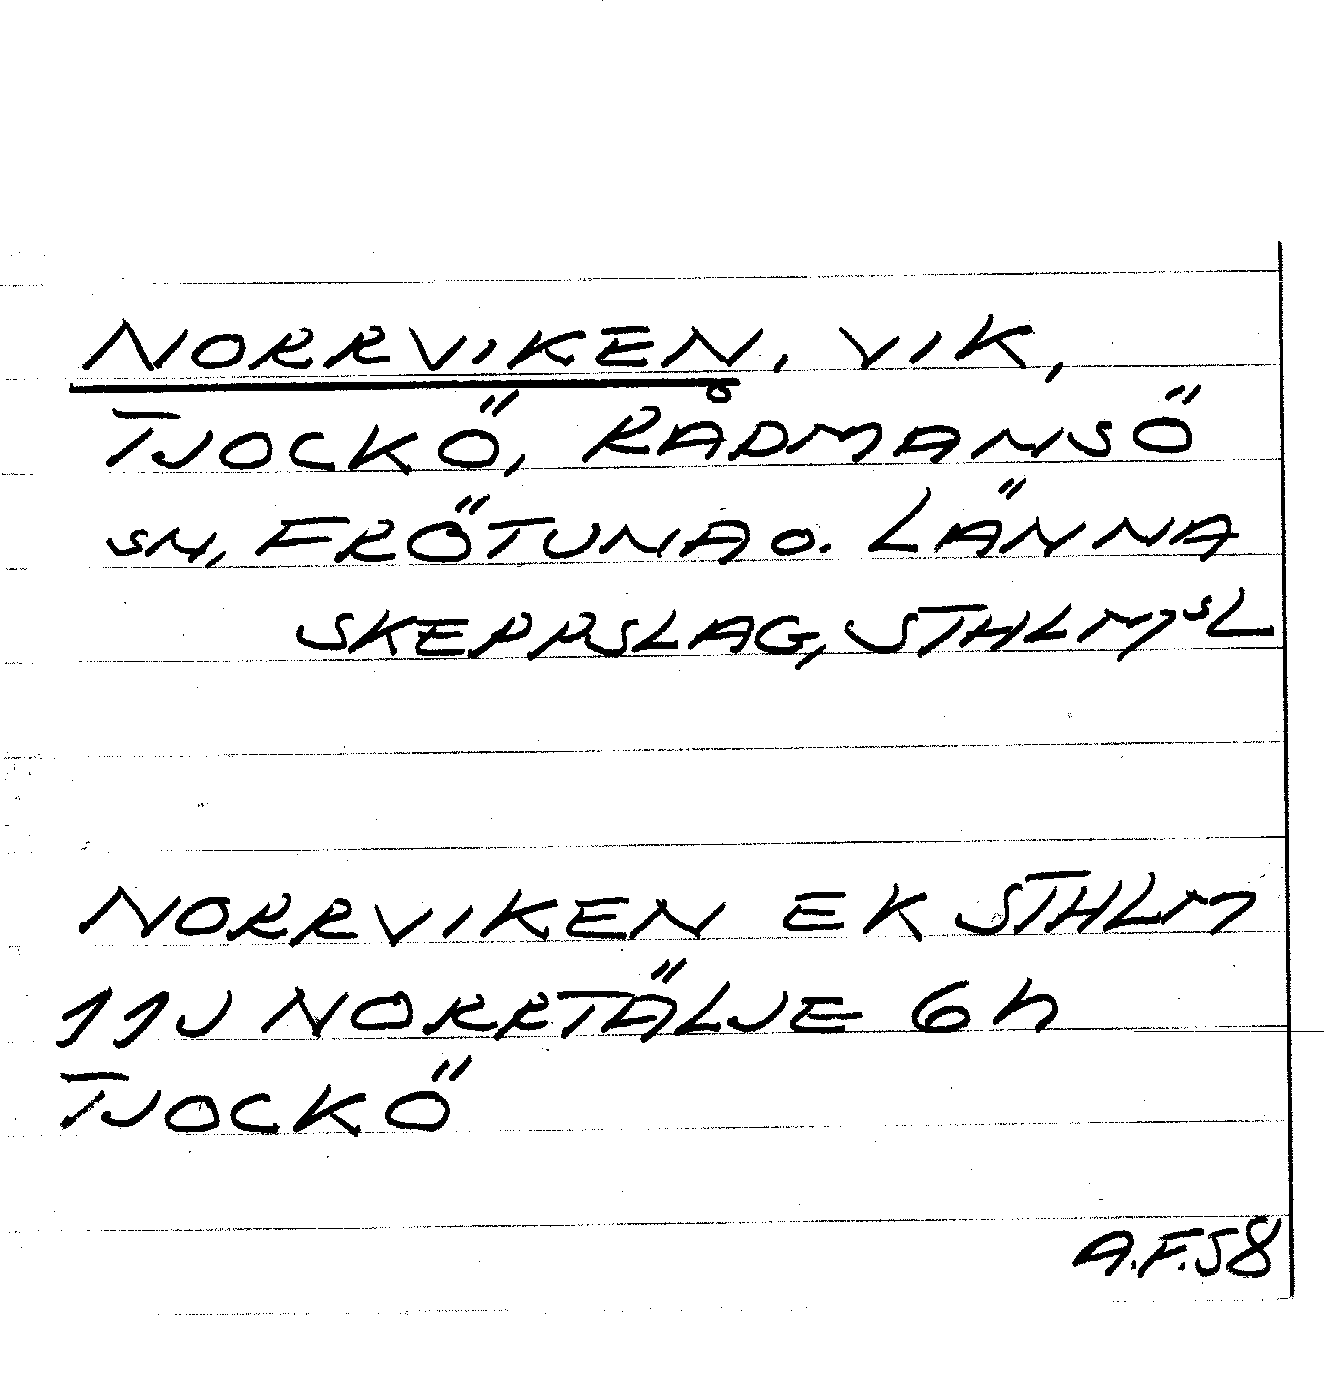 NORRVIKEN, VIK,
TJOCKÖ, RÅDMANSÖ
SN, FRÖTUNA O. LÄNNA
SKEPPSLAG, STHLMSL
NORRVIKEN EK STHLM
11J NORRTÄLJE 6h
TJOCKÖ
A.F.58